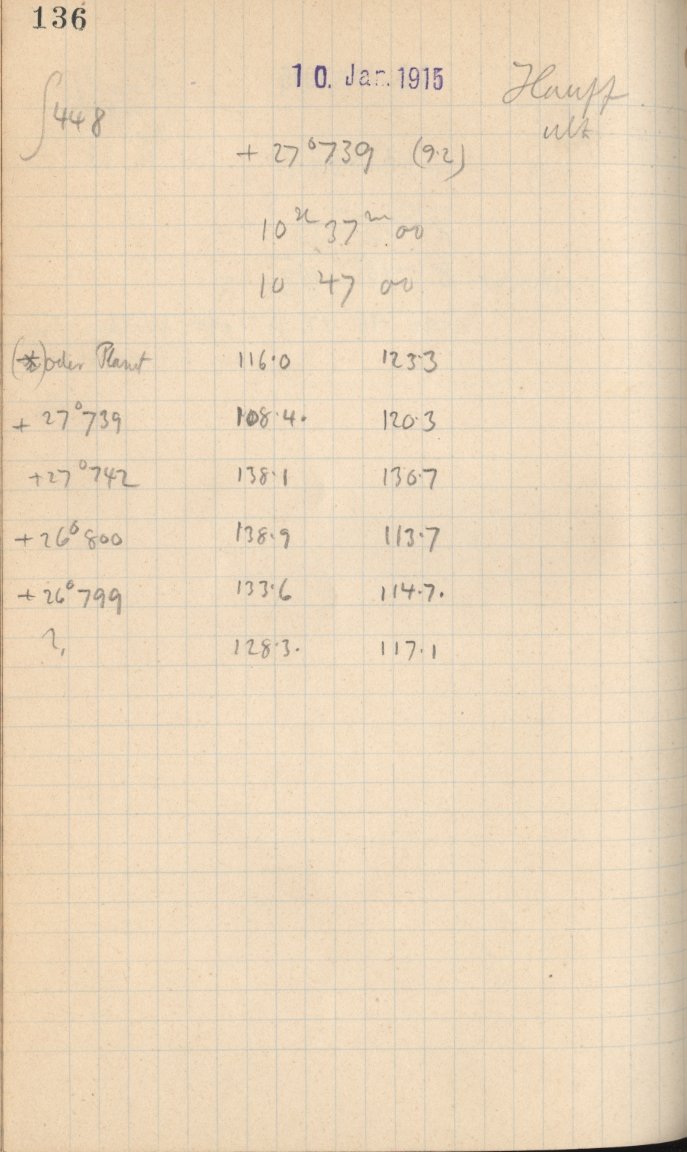 136
10. Jan. 1915
Hauff
ult
∫448
+ 27°739 (9.2)
10 h 37 m 00
10 47 00
(*) oder Planet 116.0 123.3
+ 27°739 108.4. 120.3
+27°742 138.1 136.7
+26°800 138.9 113.7
+26°799 133.6 114.7.
?, 128.3. 117.1